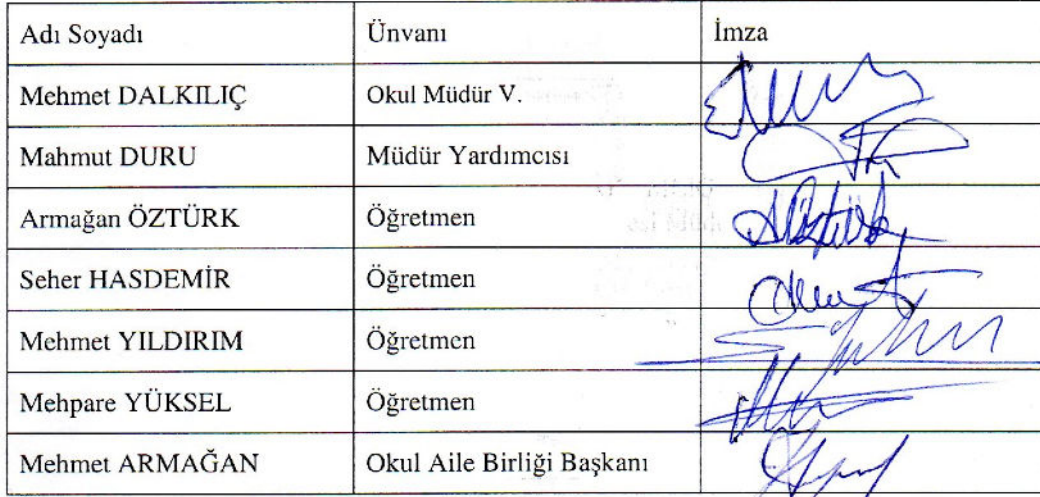 Adı Soyadı Ünvanı İmza
Mehmet DALKILIÇ Okul Müdür V.
Mahmut DURU Müdür Yardımcısı
Armağan ÖZTÜRK Öğretmen
Seher HASDEMİR Öğretmen
Mehmet YILDIRIM Öğretmen
Mehpare YÜKSEL Öğretmen
Mehmet ARMAĞAN Okul Aile Birliği Başkanı